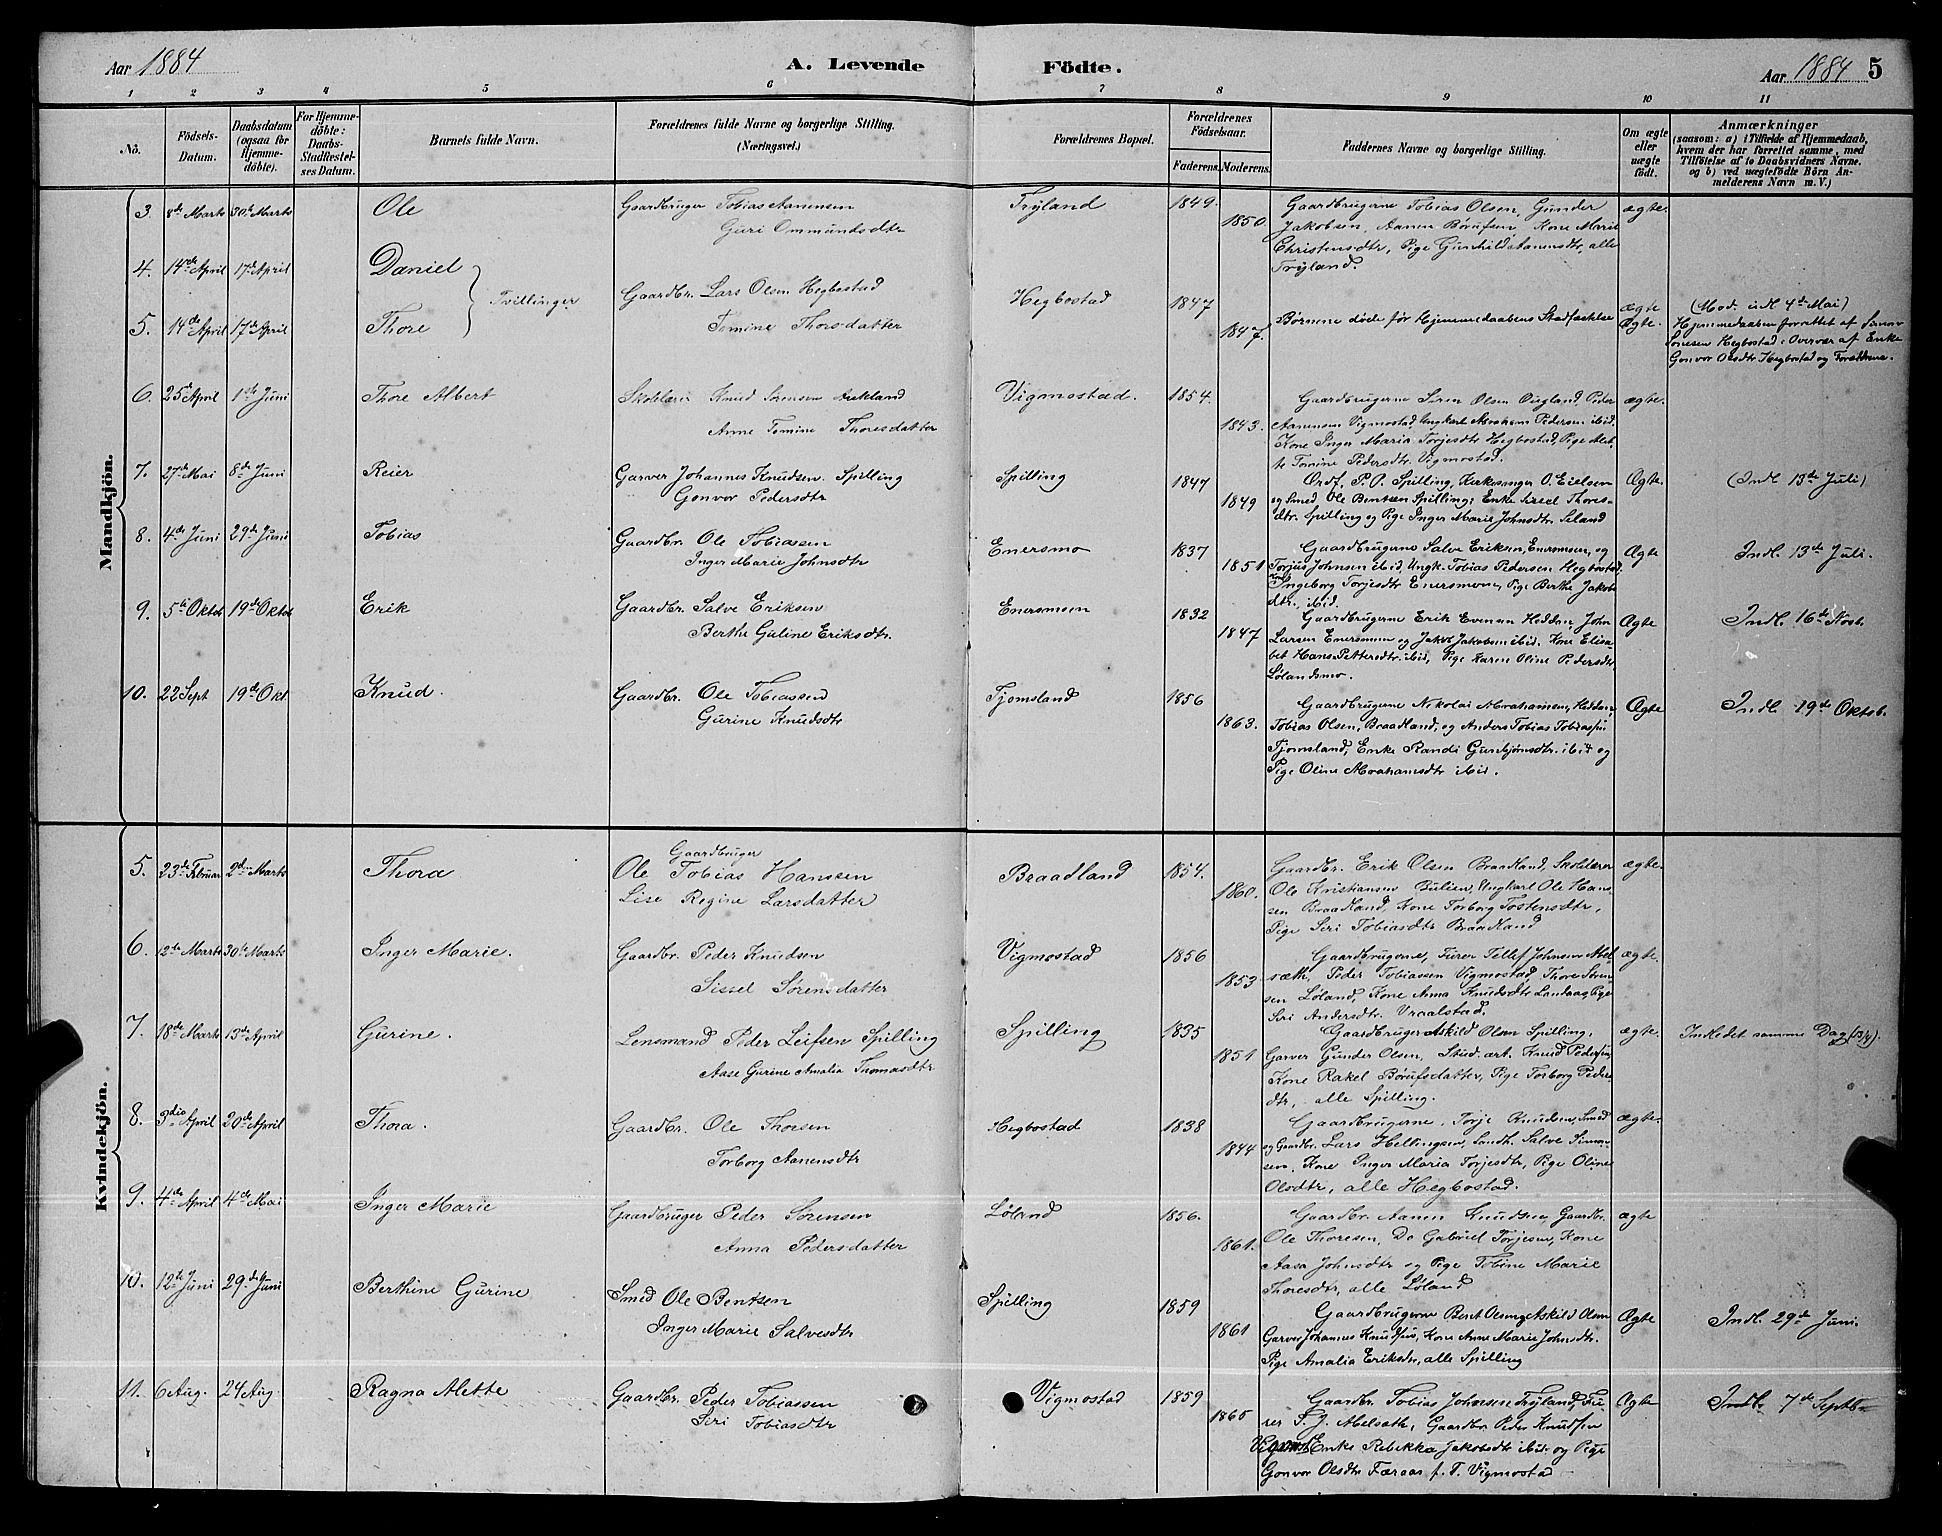 Aar 1884
A. Levende Födte.
Aar 1884 5
1 2 3 4 5 6 7 8 9 10 11
No.
Födsels-Datum.
Daabsdatum (ogsaa for Hjemme-döbte).
For Hjemme-döbte: Daabs-Stadfæstel-ses Datum.
Barnets fulde Navn.
Forældrenes fulde Navne og borgerlige Stilling. (Næringsvei.)
Forældrenes Bopæl.
Forældrenes Födselsaar.
Faderens. Moderens.
Faddernes Navne og borgerlige Stilling.
Om ægte eller uægte födt.
Anmærkninger
(saasom: a) i Tilfælde af Hjemmedaab, hvem der har forrettet samme, med Tilföielse af to Daabsvidners Navne. og b) ved uægtefödte Börn An-melderens Navn m. V.)
Mandkjön.
3. 8de Marts 30te Marts Ole Gaardbruger Tobias Aanensen Tryland 1849. Gaardbrugerne Tobias Olsen, Gunder ægte.
Guri Ommundsdtr 1850 Jakobsen, Aanen Børufsen, Kone Marie
Christensdtr, Pige Gunhild Aanensdtr, alle
Tryland.
4. 14de April 17de April Daniel
Tvillinger Gaardbr. Lars Olsen Hegbostad Hegbostad 1847 ægte (Mod. indl 4de Mai)
5. 14de April 17de April Thore Tomine Thorsdatter 1847. Børnene døde før Hjemmedaabens Stadfæstelse Ægte. Hjemmedaaben forrettet af Simon
Hegbostad i Overvær af Enke
Gonvor Olsdtr Hegbostad og Forældrene.
6. 25 April 1ste Juni Thore Albert Skolelærer Knud Sørensen Vigmostad. 1854. Gaardbrugerne Olsen Peder ægte.
Anne Tomine Thoresdatter 1843. Aanensen Vigmostad, Ungkarl Abraham Pedersen ibid.
Kone Inger Maria Torjesdtr Hegbostad, Pige Alet-
te Tomine Pedersdtr. Vigmostad.
7. 27de Mai 8de Juni Reier Garver Johannes Knudsen Spilling Spilling 1847 Ordf. P. O. Spilling, Kirkesanger O. Eielsen Ægte. (Indl 13de Juli)
Gonvor Pedersdtr 1849 og Smed Ole Bentsen Spilling; Enke Sissel Thores-
dtr. Spilling og Pige Inger Marie Johnsdtr. Seland
8. 4de Juni 29de Juni Tobias Gaardbr. Ole Tobiassen Enersmo 1837 Gaardbrugerne Salve Eriksen, Enersmoen, og Ægte Indl. 13de Juli.
Inger Marie Johnsdtr 1851 Torjus Johnsen ibid Ungk. Tobias Pedersen Hegbostad.
Ingeborg Torjesdtr Enersmoen, Pige Berthe Jakobs
dtr. ibid.
9. 5te Oktob 19de Oktob Erik Gaardbr. Salve Eriksen Enersmoen 1832 Gaardbrugerne Erik Evensen Hedden John Ægte Indl. 16de Novb.
Berthe Guline Eriksdtr. 1847 Larsen Enersmoen og Jakob Jakobsen ibid. Kone Elisa-
bet Hans-Pettersdtr ibid, Pige Karen Oline Pedersdtr
Lølandsmo.
10. 22 Sept 19de Okt. Knud. Gaardbr. Ole Tobiassen Tjomsland 1856 Gaardbrugerne Nikolai Abrahamsen, Hedden, Ægte Indl. 19de Oktob.
Gurine Knudsdtr 1863. Tobias Olsen, Braadland, og Anders Tobias Tobiassen
Tjomsland, Enke Randi Gunbjørnsdtr. ibid og
Pige Oline Abrahamsdtr ibid.
Kvindekjön.
5. 23de Februar 2den Marts Thora Gaardbruger
Ole Tobias Hanssen Braadland 1854. Gaardbr. Erik Olsen Braadland, Skolelærer ægte.
Lise Regine Larsdatter 1860. Ole Kristiansen Ungkarl Ole Hans-
sen Braadland, Kone Torborg Tostensdtr,
Pige Siri Tobiasdtr Braadland
6. 12te Marts 30te Marts Inger Marie. Gaardbr. Peder Knudsen Vigmostad 1856 Gaardbrugerne, Furer Tellef Johnsen Abel- ægte.
Sissel Sørensdatter 1853 sæth, Peder Tobiassen Vigmostad Thore Søren-
sen Løland, Kone Anna Knudsdtr Landaas Pige
Siri Andersdtr. Vraalstad.
7. 18de Marts 13de April Gurine. Lensmand Peder Leifsen Spilling Spilling 1835 Gaardbruger Askild Olsen Spilling, ægte. Indledet samme Dag (13/4).
Aase Gurine Amalia Thomasdtr 1851 Garver Gunder Olsen, Stud. art. Knud Pedersen,
Kone Rakel Børufsdatter, Pige Torborg Peders
dtr, alle Spilling.
8. 3die April 20de April Thora. Gaardbr. Ole Thorsen Hegbostad 1838 Gaardbrugerne, Torje Knudsen, Smed ægte.
Torborg Aanensdtr 1844 og Gaardbr. Lars Hellingsen, Landh. Salve Simon-
sen, Kone Inger Maria Torjesdtr, Pige Oline
Olsdtr, alle Hegbostad.
9. 4de April 4de Mai Inger Marie Gaardbruger Peder Sørensen Løland 1856. Gaardbr. Aanen Knudsen, Gaardbr. ægte
Anna Pedersdatter 1861. Ole Thoresen, Do Gabriel Torjesen, Kone
Aasa Johnsdtr og Pige Tobine Marie
Thoresdtr, alle Løland
10. 12te Juni 29de Juni Berthine Gurine Smed Ole Bentsen Spilling 1859 Gaardbrugerne Bent Olsen og Askild Olsen Ægte Indl. 29de Juni.
Inger Marie Salvesdtr 1861 Garver Johannes Knudsen, Kone Anne Marie Johnsdtr.
Pige Amalia Eriksdtr, alle Spilling
11. 6 Aug. 24 Aug. Ragna Alette Gaardbr. Peder Tobiassen Vigmostad 1859 Gaardbr. Tobias Johnsen Tryland, Fu- Ægte Indl. 7de Septb.
Siri Tobiasdtr 1865 rer T. J. Abelseth, Gaardbr. Peder Knudsen
Vigmost. Enke Rebekka Jakobsdtr ibid. og Pige
Gonvor Olsdtr Faraas f. T. Vigmostad